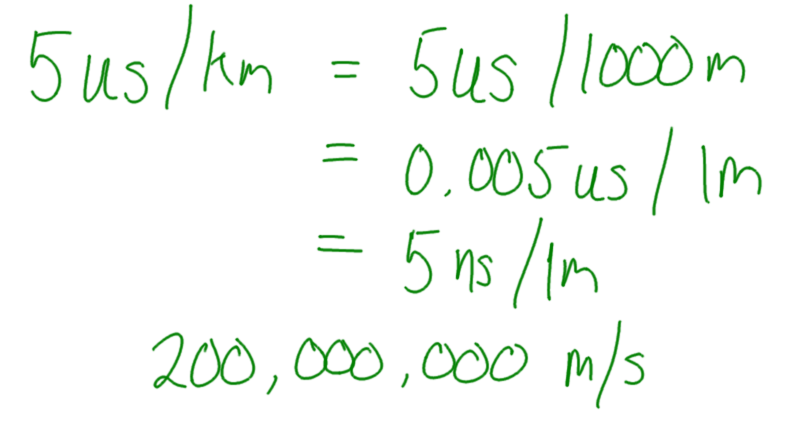 5us/km = 5us/1000m
= 0.005us/1m
= 5ns/1m
200,000,000 m/s